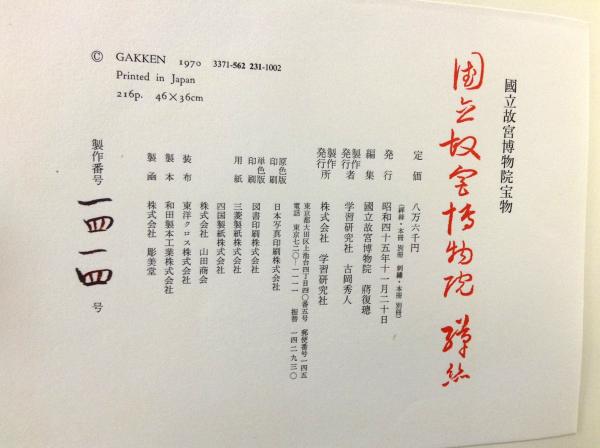 國立故宮博物院宝物
国立故宮博物院 緙絲
定価 八万六千円
(緙絲・本冊 別冊 刺繡・本冊 別冊)
発行 昭和四十五年十一月二十日
編集 國立故宮博物院 蔣復璁
製作者
発行者 学習研究社 古岡秀人
製作所
発行所 株式会社 学習研究社
東京都大田区上池台四丁目四〇番五号 郵便番号一四五
電話 東京七二〇―一一一一 振替 一四二九三〇
原色版
印刷 日本写真印刷株式会社
単色版
印刷 図書印刷株式会社
用紙 三菱製紙株式会社
四国製紙株式会社
株式会社 山田商会
装布 東洋クロス株式会社
製本 和田製本工業株式会社
製函 株式会社 彫美堂
製作番号 一四一四 号
© GAKKEN 1970 3371-562 231-1002
Printed in Japan
216p. 46×36cm